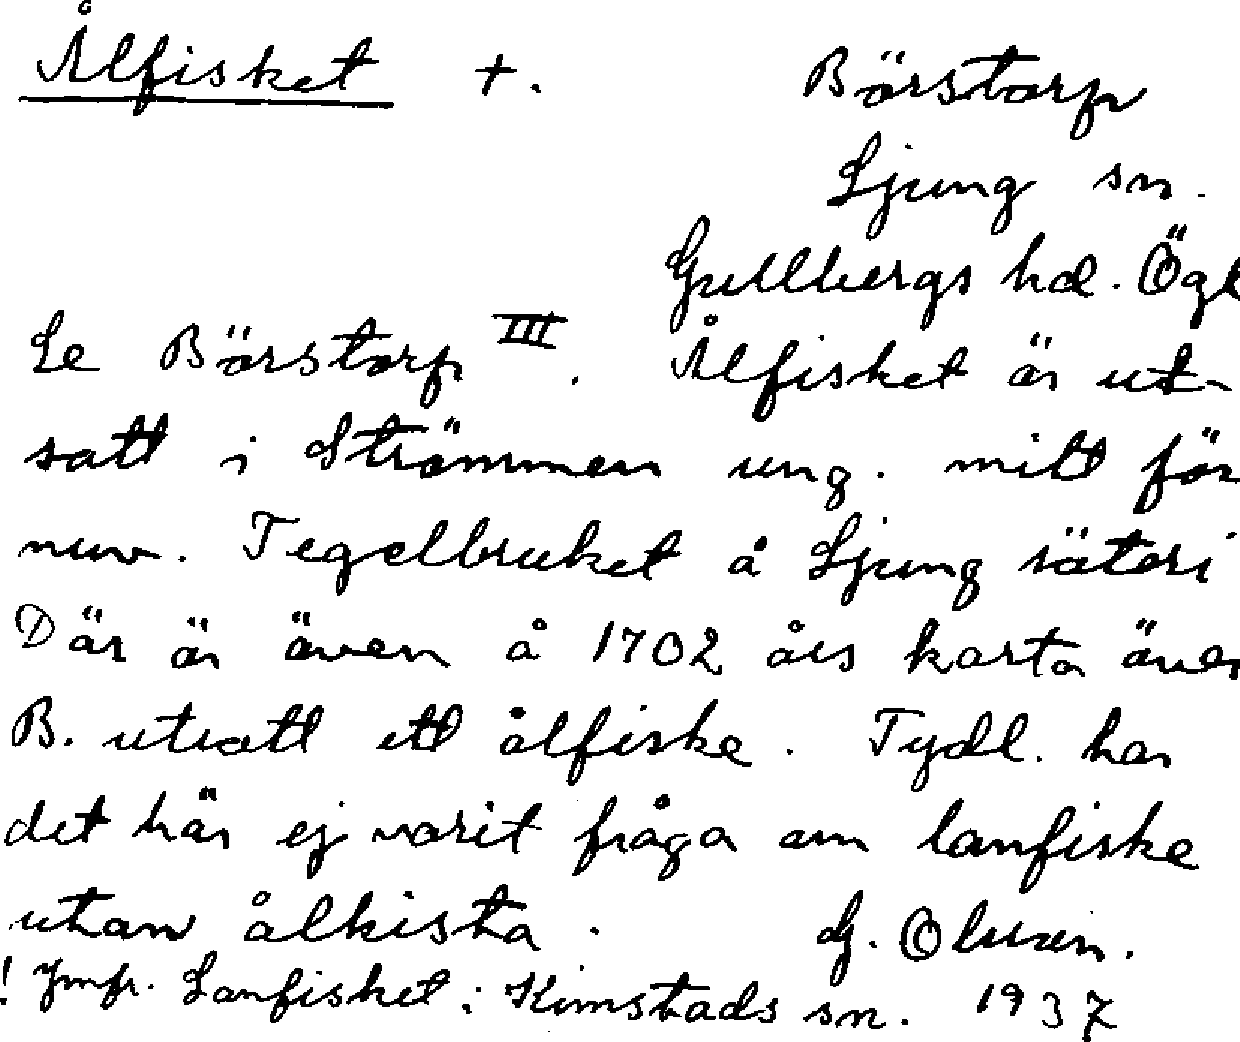 Ålfisket +. Börstorp
Ljung sn.
Gullbergs hd. Ögl
Se Börstorp III. Ålfisket är ut-
satt i Strömmen ung. mitt för
nuv. Tegelbruket å Ljung säteri
Där är även å 1702 års karta över
B. utsatt ett ålfiske. Tydl. har
det här ej varit fråga om lanfiske
utan ålkista. G. Olsson.
! Jmfr. Lanfisket i Kimstads sn. 1937